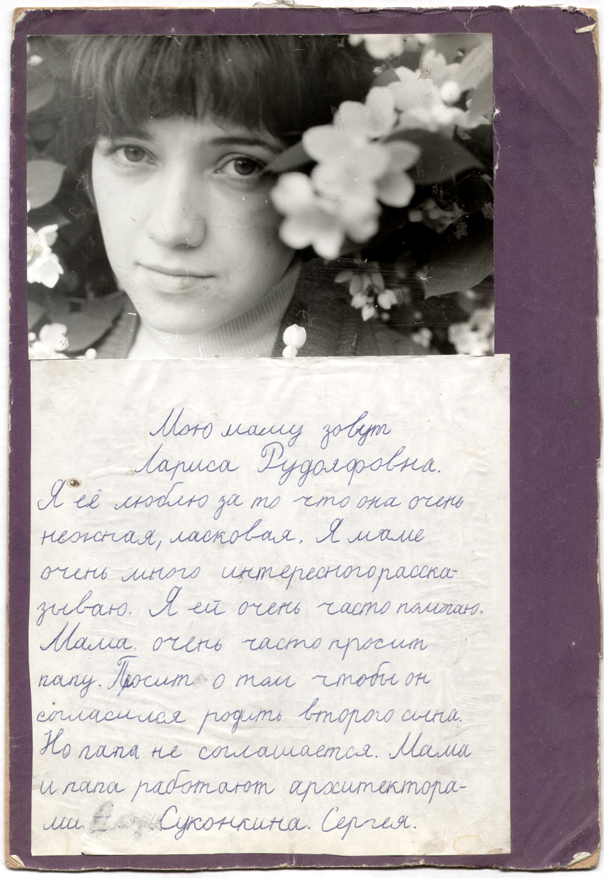 Мою маму зовут
Лариса Рудолфовна.
Я её люблю за то что она очень
нежная, ласковая. Я маме
очень много интересного расска-
зываю. Я ей очень часто помогаю.
Мама очень часто просит
папу. Просит о том чтобы он
согласился родить второго сына.
Но папа не соглашается. Мама
и папа работают архитектора-
ми. Суконкина. Сергея.